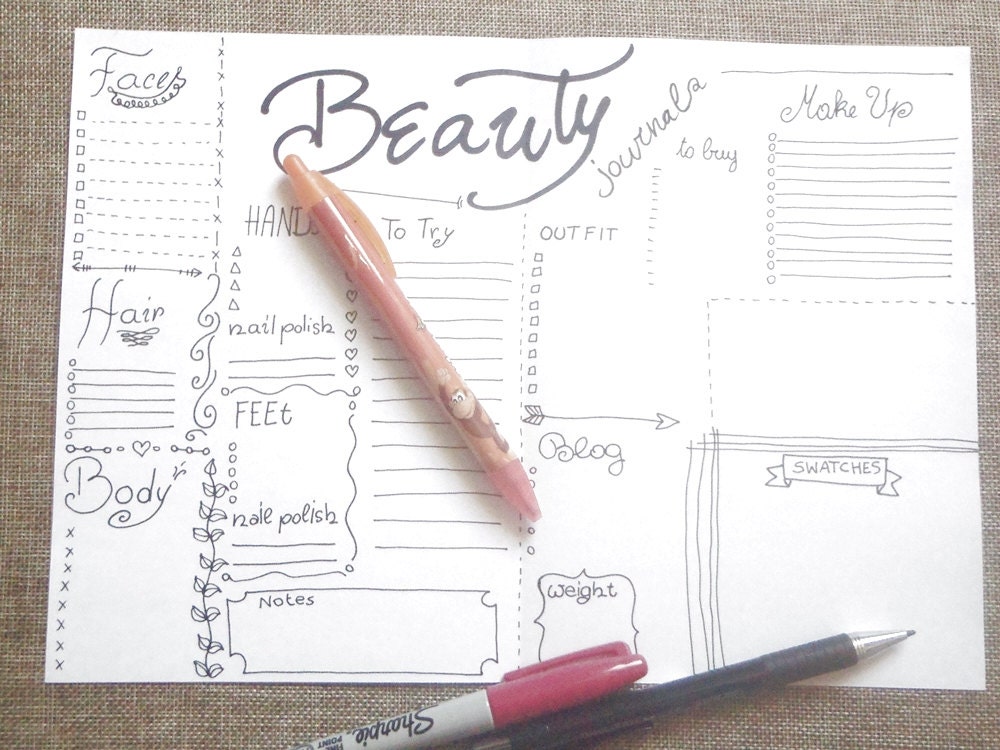 Faces
Beauty
journals
Make Up
to buy
HANDS
To Try
OUTFIT
Hair
nail polish
FEEt
Blog
SWATCHES
Body
naie polish
Notes
Weight
Sharpie
FINE
POINT